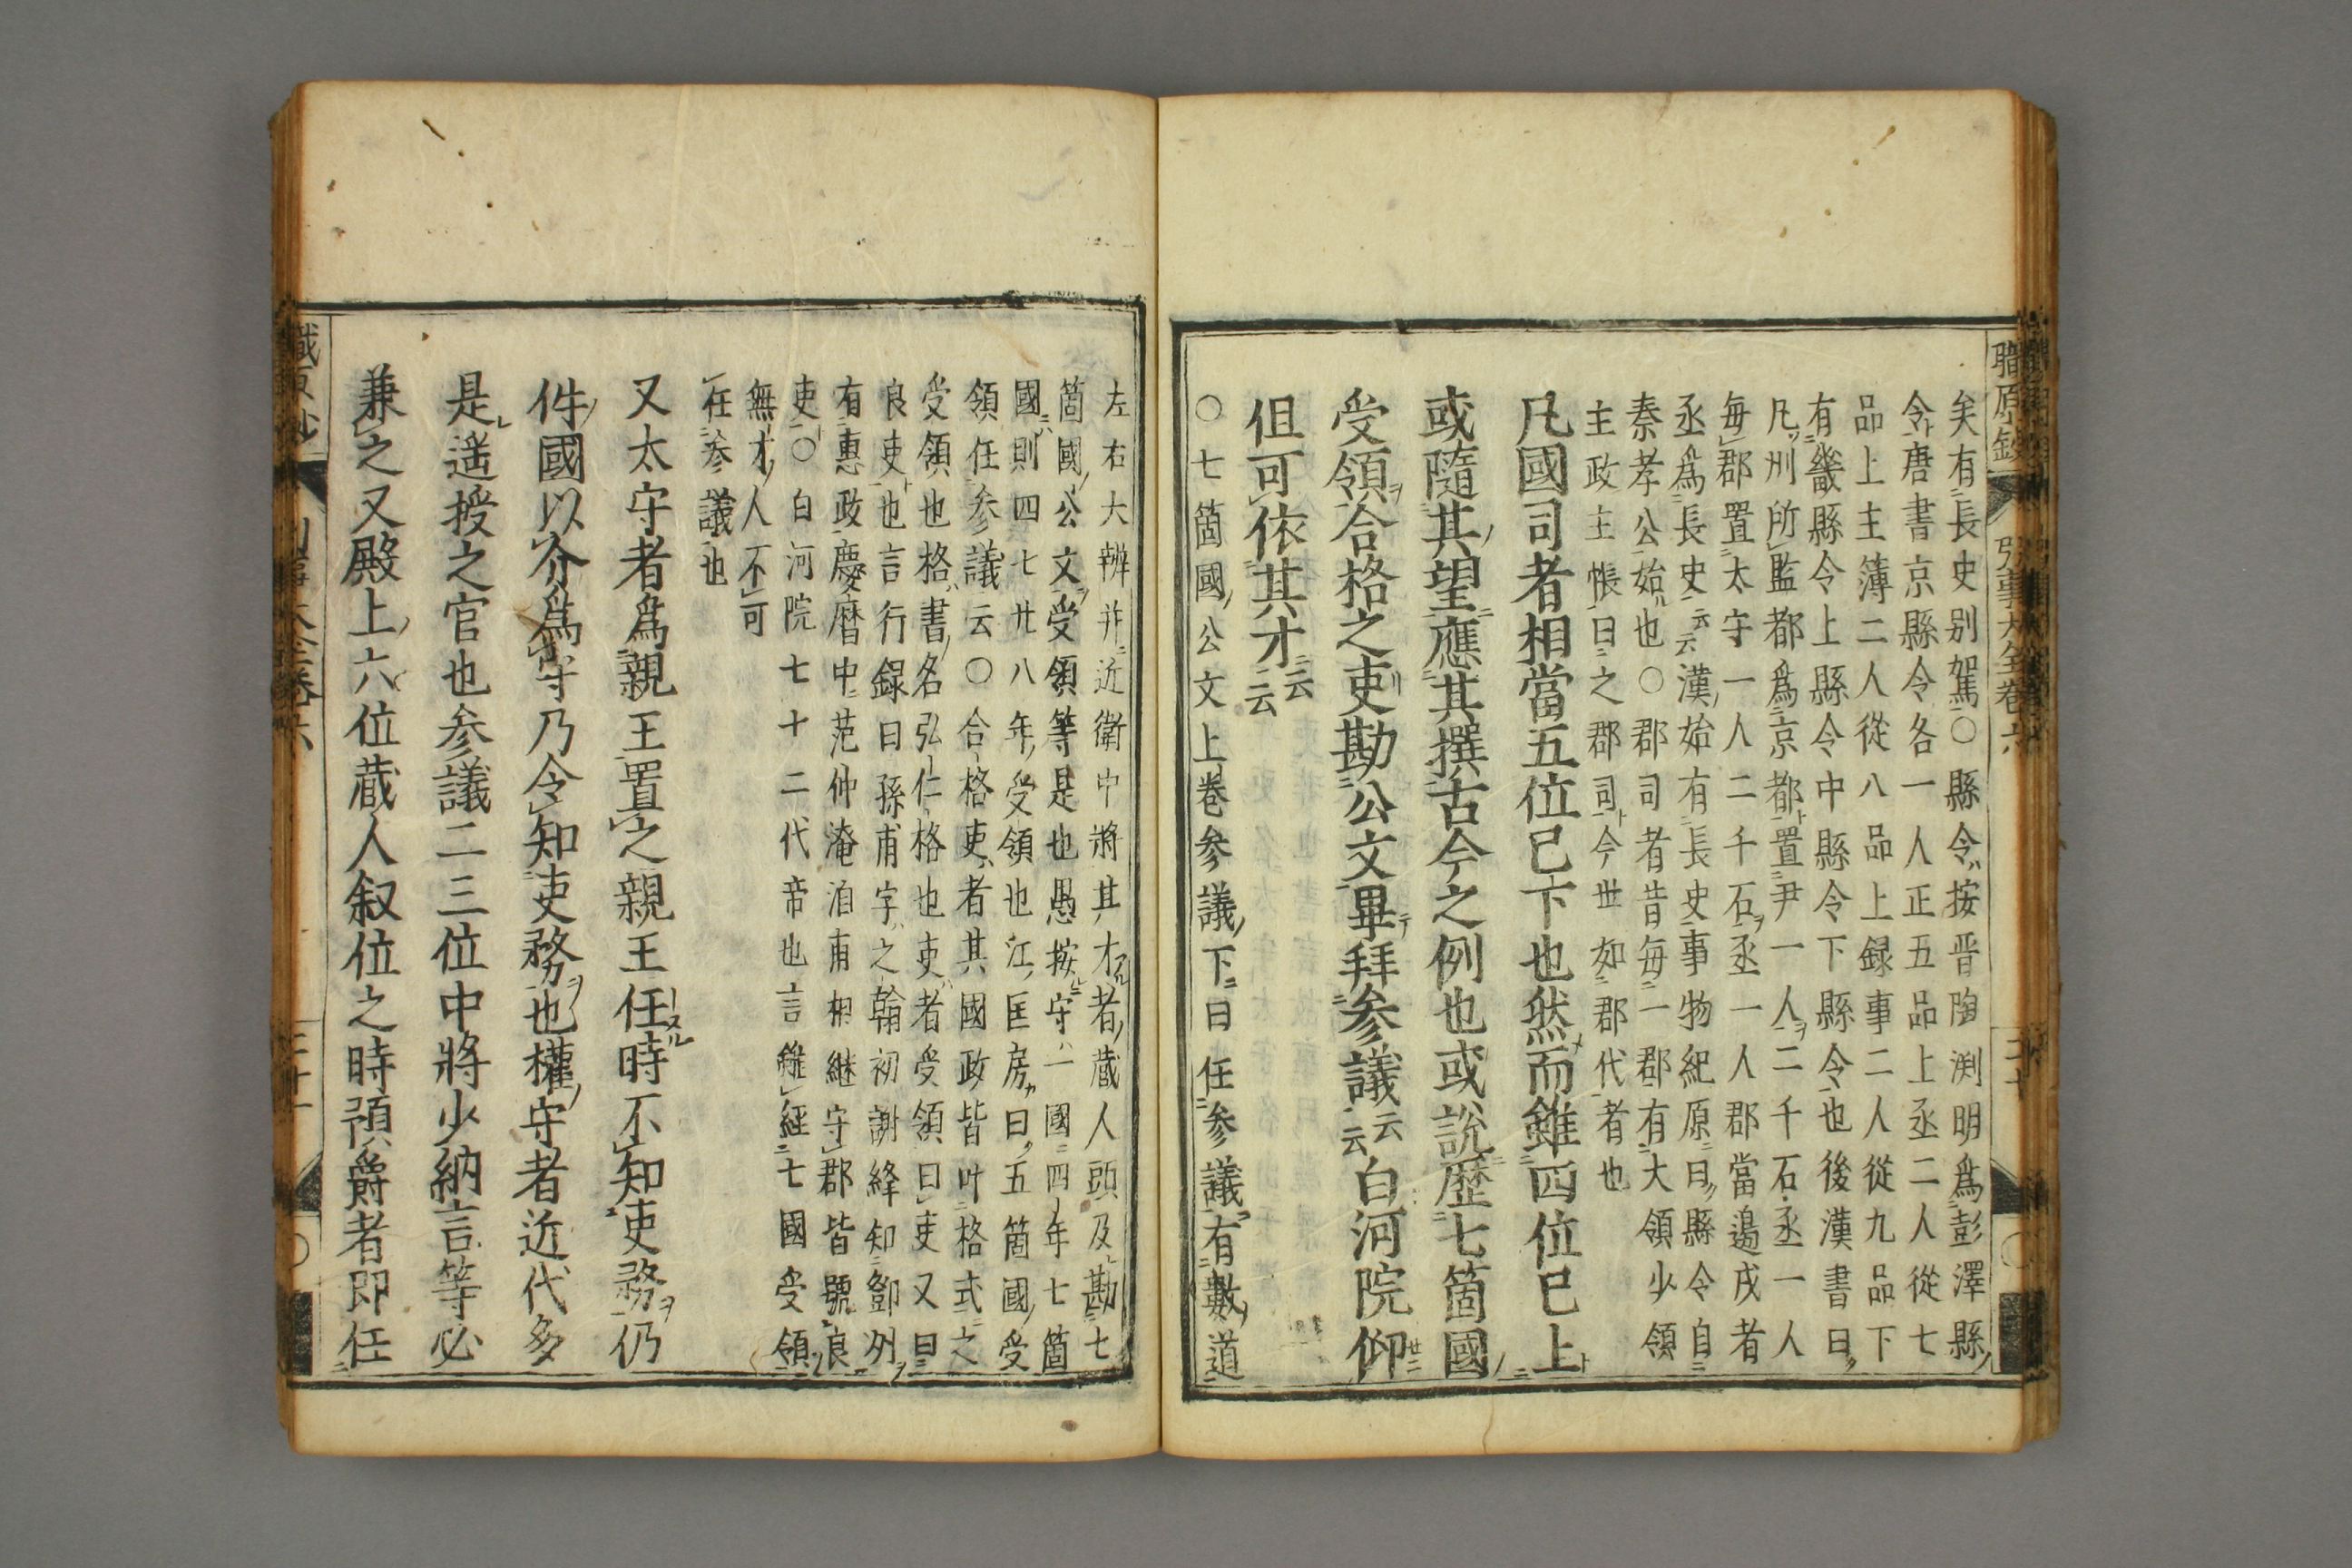 職原鈔 引事大全卷六
矣有長史別駕○縣令按晋陶渕明爲彭澤縣
令唐書京縣令各一人正五品上丞二人從七
品上主簿二人從八品上録事二人從九品下
有畿縣令上縣令中縣令下縣令也後漢書曰
凡州所監都爲京都置尹一人二千石丞一人
毎郡置太守一人二千石丞一人郡當邉戌者
丞爲長史云云漢始有長史事物紀原曰縣令自
秦孝公始也○郡司者昔毎一郡有大領少領
主政主帳曰之郡司今世如郡代者也
凡國司者相當五位已下也然而雖四位已上
或隨其望應其撰古今之例也或說歷七箇國
受領合格之吏勘公文畢拜参議云云白河院仰
但可依其才云云
○七箇國公文上卷参議下曰任参議有數道
左右大辨并近衛中將其才者蔵人頭及勘七
箇國公文受領等是也愚按守一國四年七箇
國則四七廿八年受領也江匡房曰五箇國受
領任参議云○合格吏者其國政皆叶格式之
受領也格書名弘仁格也吏者受領曰吏又曰
良吏也言行録曰孫甫字之翰初謝絳知鄧州
有惠政慶暦中范仲淹洎甫相継守郡皆號良
吏○白河院七十二代帝也言雖經七國受領
無才人不可
任参議也
又太守者爲親王置之親王任時不知吏務仍
件國以介爲守乃令知吏務也權守者近代多
是遥授之官也参議二三位中將少納言等必
兼之又殿上六位蔵人叙位之時預爵者即任